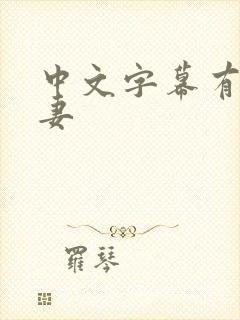 中文字幕有
妻
羅琴